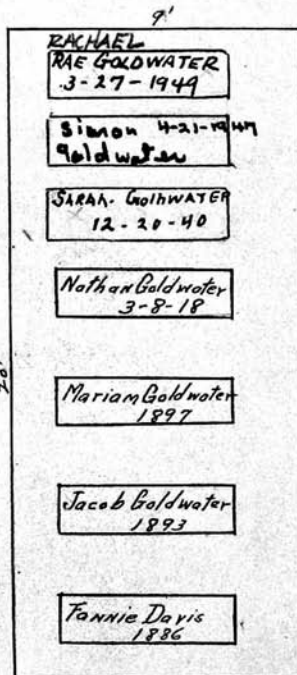 9'
RACHAEL
RAE GOLDWATER
3-27-1949
Simon 4-21-1947
Goldwater
SARAH. GOLHWATER
12-20-40
Nathan Goldwater
3-8-18
Mariam Goldwater
1897
20'
Jacob Goldwater
1893
Fannie Davis
1886